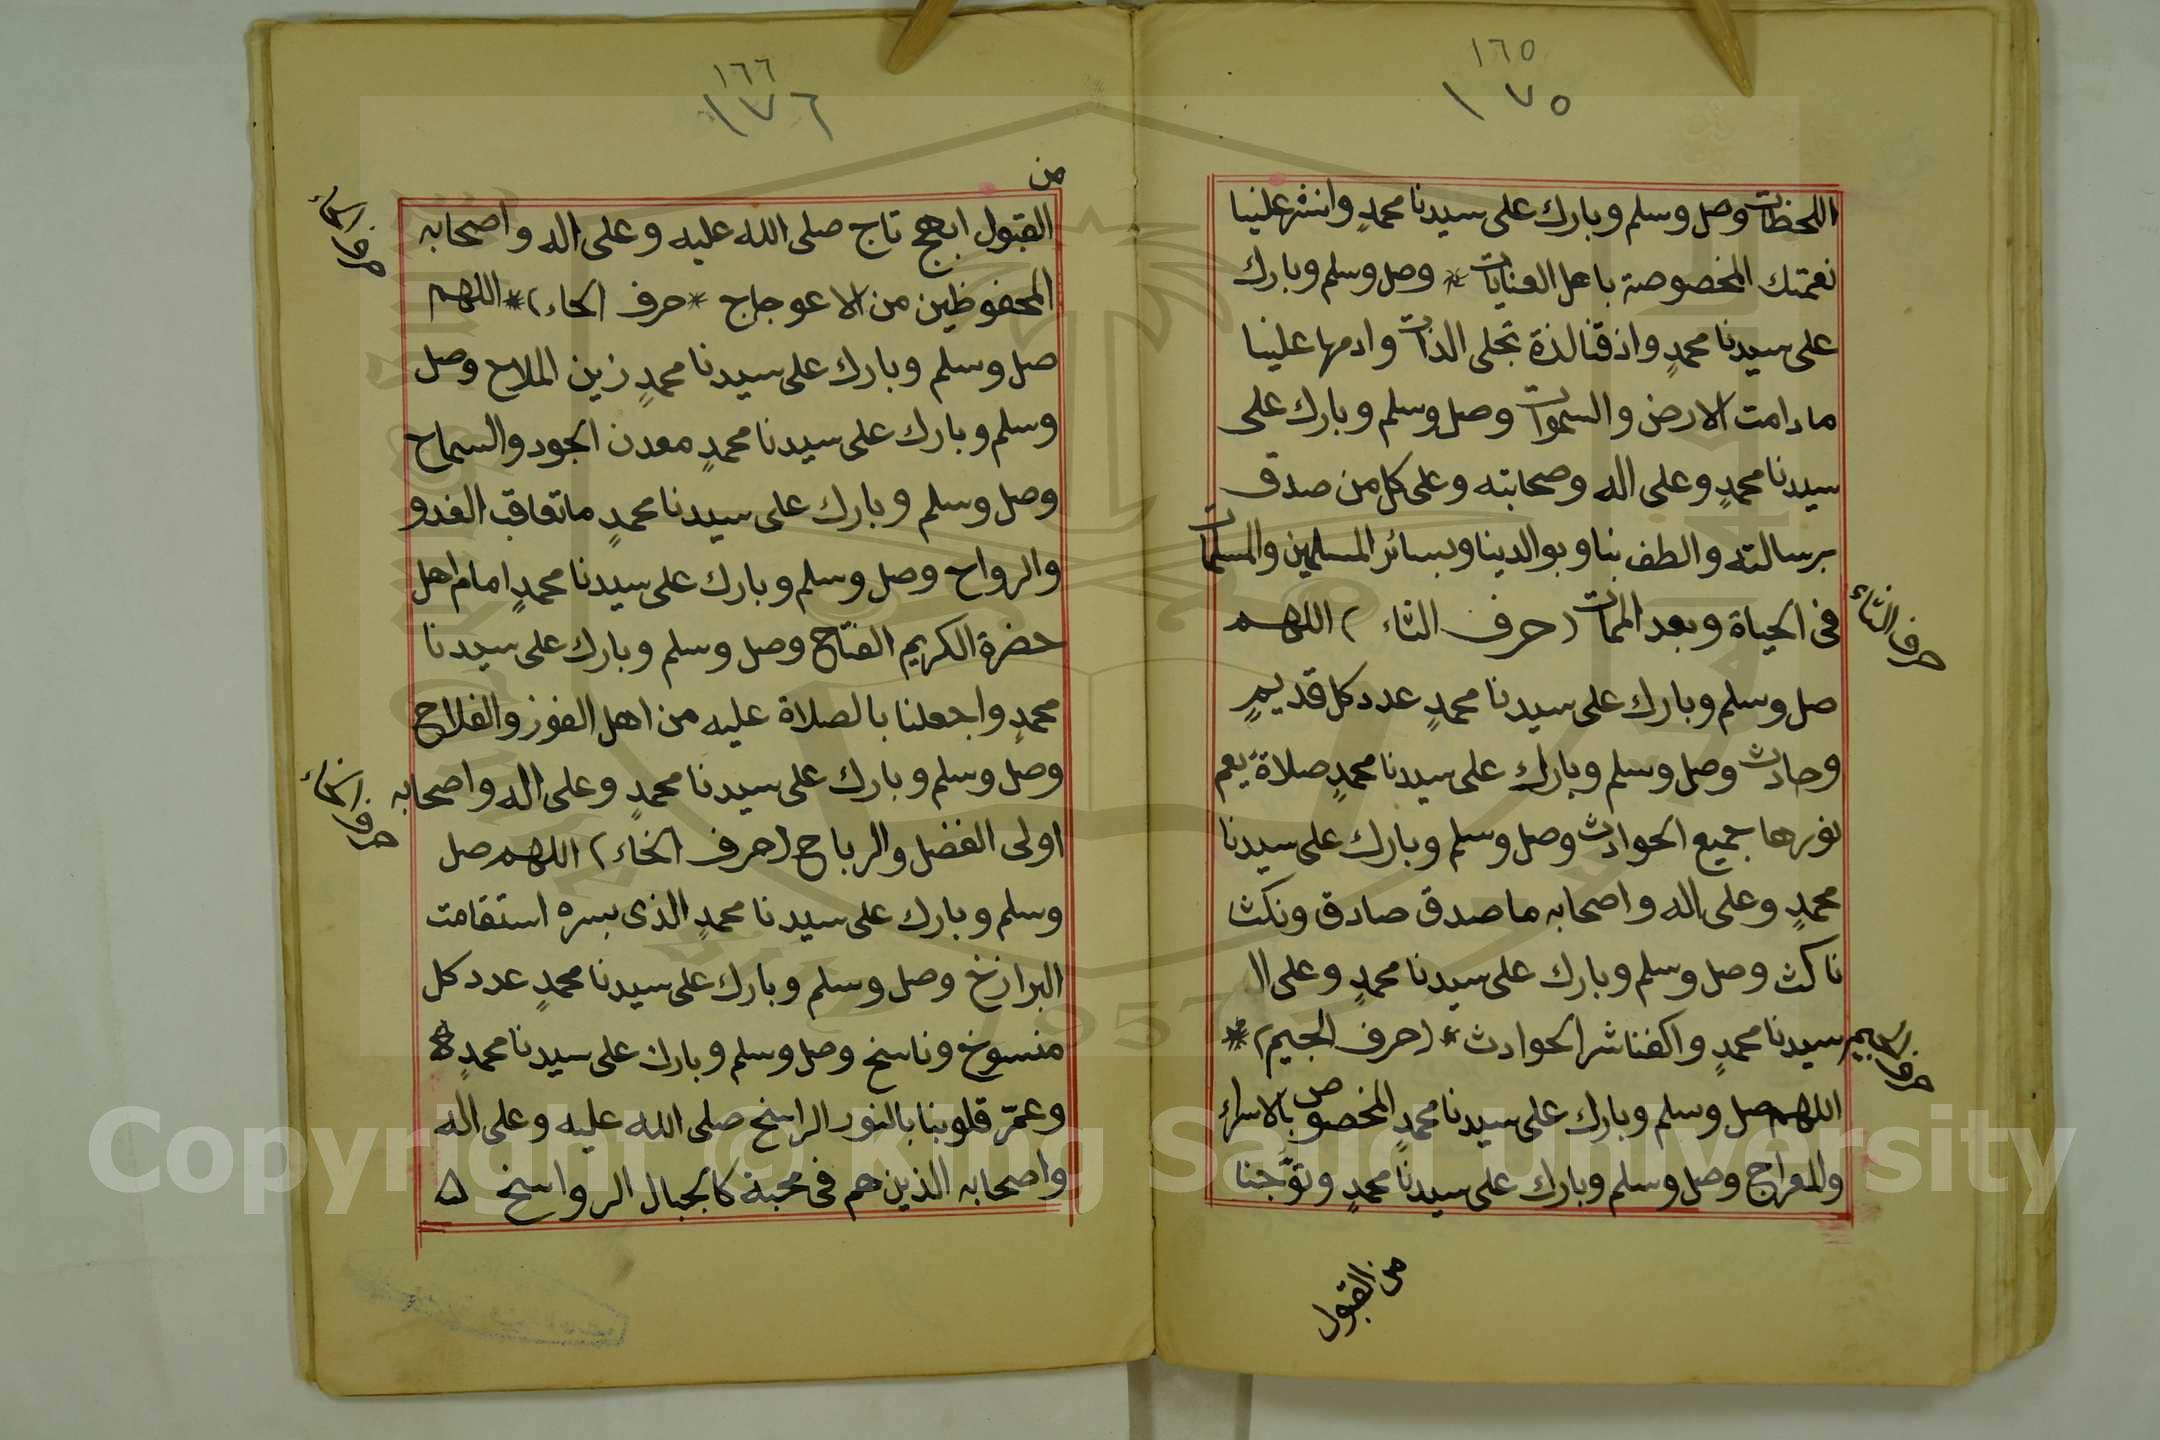 ١٦٥
١٧٥
اللحظات وصل وسلم وبارك على سيدنا محمدٍ وانشر علينا
نعمتك المخصوصة باهل العنايات * وصل وسلم وبارك
على سيدنا محمدٍ واذقنا لذة تجلى الذات وادمها علينا
مادامت الارض والسموات وصل وسلم وبارك على
سيدنا محمدٍ وعلى اله وصحابته وعلى كل من صدق
برسالته والطف بنا وبوالدينا وبسائر المسلمين والمسلمات
فى الحياة وبعد الممات (حرف الثاء) اللهم
صل وسلم وبارك على سيدنا محمدٍ عدد كل قديمٍ
وحادث وصل وسلم وبارك على سيدنا محمدٍ صلاةً يعم
نورها جميع الحوادث وصل وسلم وبارك على سيدنا
محمدٍ وعلى اله واصحابه ما صدق صادق ونكث
ناكث وصل وسلم وبارك على سيدنا محمدٍ وعلى ال
سيدنا محمدٍ واكفنا شر الحوادث * (حرف الجيم) *
اللهم صل وسلم وبارك على سيدنا محمدٍ المخصوص بالاسراء
والمعراج وصل وسلم وبارك على سيدنا محمدٍ وتوّجنا
من القبول
حرف الثاء
حرف الجيم
١٦٦
١٧٦
من
القبول ابهج تاج صلى الله عليه وعلى اله واصحابه
المحفوظين من الاعوجاج * حرف الحاء) * اللهم
صل وسلم وبارك على سيدنا محمدٍ زين الملاح وصل
وسلم وبارك على سيدنا محمدٍ معدن الجود والسماح
وصل وسلم وبارك على سيدنا محمدٍ ماتعاقب الغدو
والرواح وصل وسلم وبارك على سيدنا محمدٍ امام اهل
حضرة الكريم الفتاح وصل وسلم وبارك على سيدنا
محمدٍ واجعلنا بالصلاة عليه من اهل الفوز والفلاح
وصل وسلم وبارك على سيدنا محمدٍ وعلى اله واصحابه
اولى الفضل والرباح (حرف الخاء) اللهم صل
وسلم وبارك على سيدنا محمدٍ الذى بسره استقامت
البرازخ وصل وسلم وبارك على سيدنا محمدٍ عدد كل
منسوخ وناسخ وصل وسلم وبارك على سيدنا محمدٍ
وعمّر قلوبنا بالنور الراسخ صلى الله عليه وعلى اله
واصحابه الذين هم فى محبة كالجبال الرواسخ
حرف الحاء
حرف الخاء
Copyright © King Saud University
1957